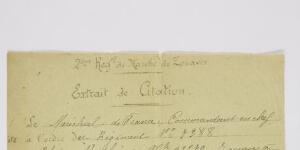 2ème Regt de Marche de Zouaves
Extrait de Citation.
Le Maréchal de France Commandant en chef
à l'ordre du Régiment No 4288